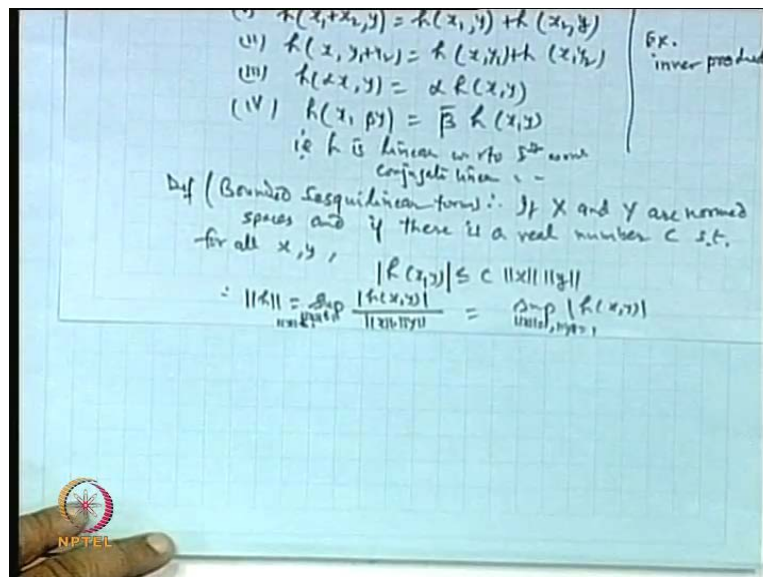 (i) h(x₁+x₂, y) = h(x₁, y) + h(x₂, y)
(ii) h(x, y₁+y₂) = h(x, y₁) + h(x, y₂)
(iii) h(αx, y) = α h(x, y)
(iv) h(x, βy) = β̄ h(x, y)
Ex.
inner product
ie h is linear w.r.to 1st
conjugate linear " "
Def (Bounded Sesquilinear form): If X and Y are normed
spaces and if there is a real number C s.t.
for all x, y,
|h(x,y)| ≤ C ||x|| ||y||
∴ ||h|| = sup |h(x,y)| / ||x|| ||y|| = sup |h(x,y)|
||x||=1, ||y||=1
NPTEL